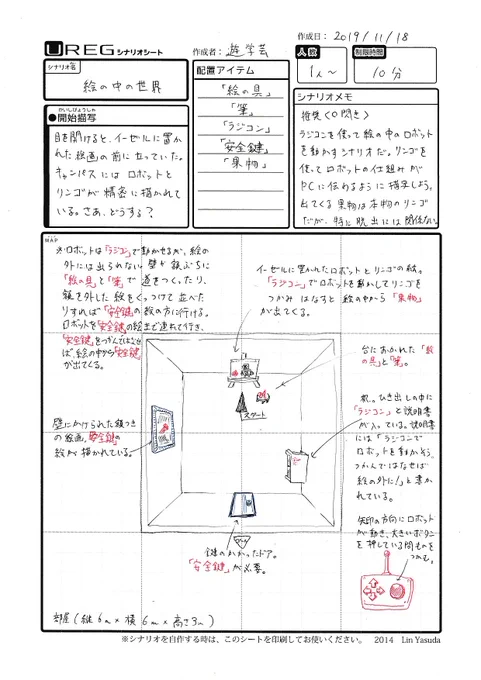 UREG シナリオシート
作成者: 遊学芸
作成日: 2019/11/18
シナリオ名
絵の中の世界
人数
1人〜
制限時間
10分
配置アイテム
「絵の具」
「筆」
「ラジコン」
「安全鍵」
「果物」
●開始描写
かいしびょうしゃ
目を開けると、イーゼルに置か
れた絵画の前に立っていた。
キャンバスには ロボットと
リンゴが精密に描かれて
いる。さあ、どうする?
シナリオメモ
推奨〈0閃き〉
ラジコンを使って絵の中のロボット
を動かすシナリオだ。リンゴを
使ってロボットの仕組みが
PCに伝わるように描写しよう。
出てくる果物は本物のリンゴ
だが、特に脱出には関係ない。
MAP
※ロボットは「ラジコン」で動かせるが、絵の
外には出られない。壁や額ぶちに
「絵の具」と「筆」で道をつくったり、
額を外した絵をくっつけて並べた
りすれば「安全鍵」の絵の方に行ける。
ロボットを「安全鍵」の絵まで連れて行き、
「安全鍵」をつかんではなせ
ば、絵の中から「安全鍵」
が出てくる。
イーゼルに置かれたロボットとリンゴの絵。
「ラジコン」でロボットを動かしてリンゴを
つかみ はなすと 絵の中から「果物」
が出てくる。
台におかれた「絵
の具」と「筆」。
スタート
机。ひき出しの中に
「ラジコン」と説明書
が入っている。説明書
には「ラジコンで
ロボットを動かそう。
つかんではなせば
絵の外に!」と書か
れている。
壁にかけられた額つき
の絵画。「安全鍵」の
絵が描かれている。
矢印の方向にロボット
が動き、大きいボタン
を押している間ものを
つかむ。
鍵のかかったドア。
「安全鍵」が必要。
部屋(縦6m×横6m×高さ3m)
※シナリオを自作する時は、このシートを印刷してお使いください。 2014 Lin Yasuda